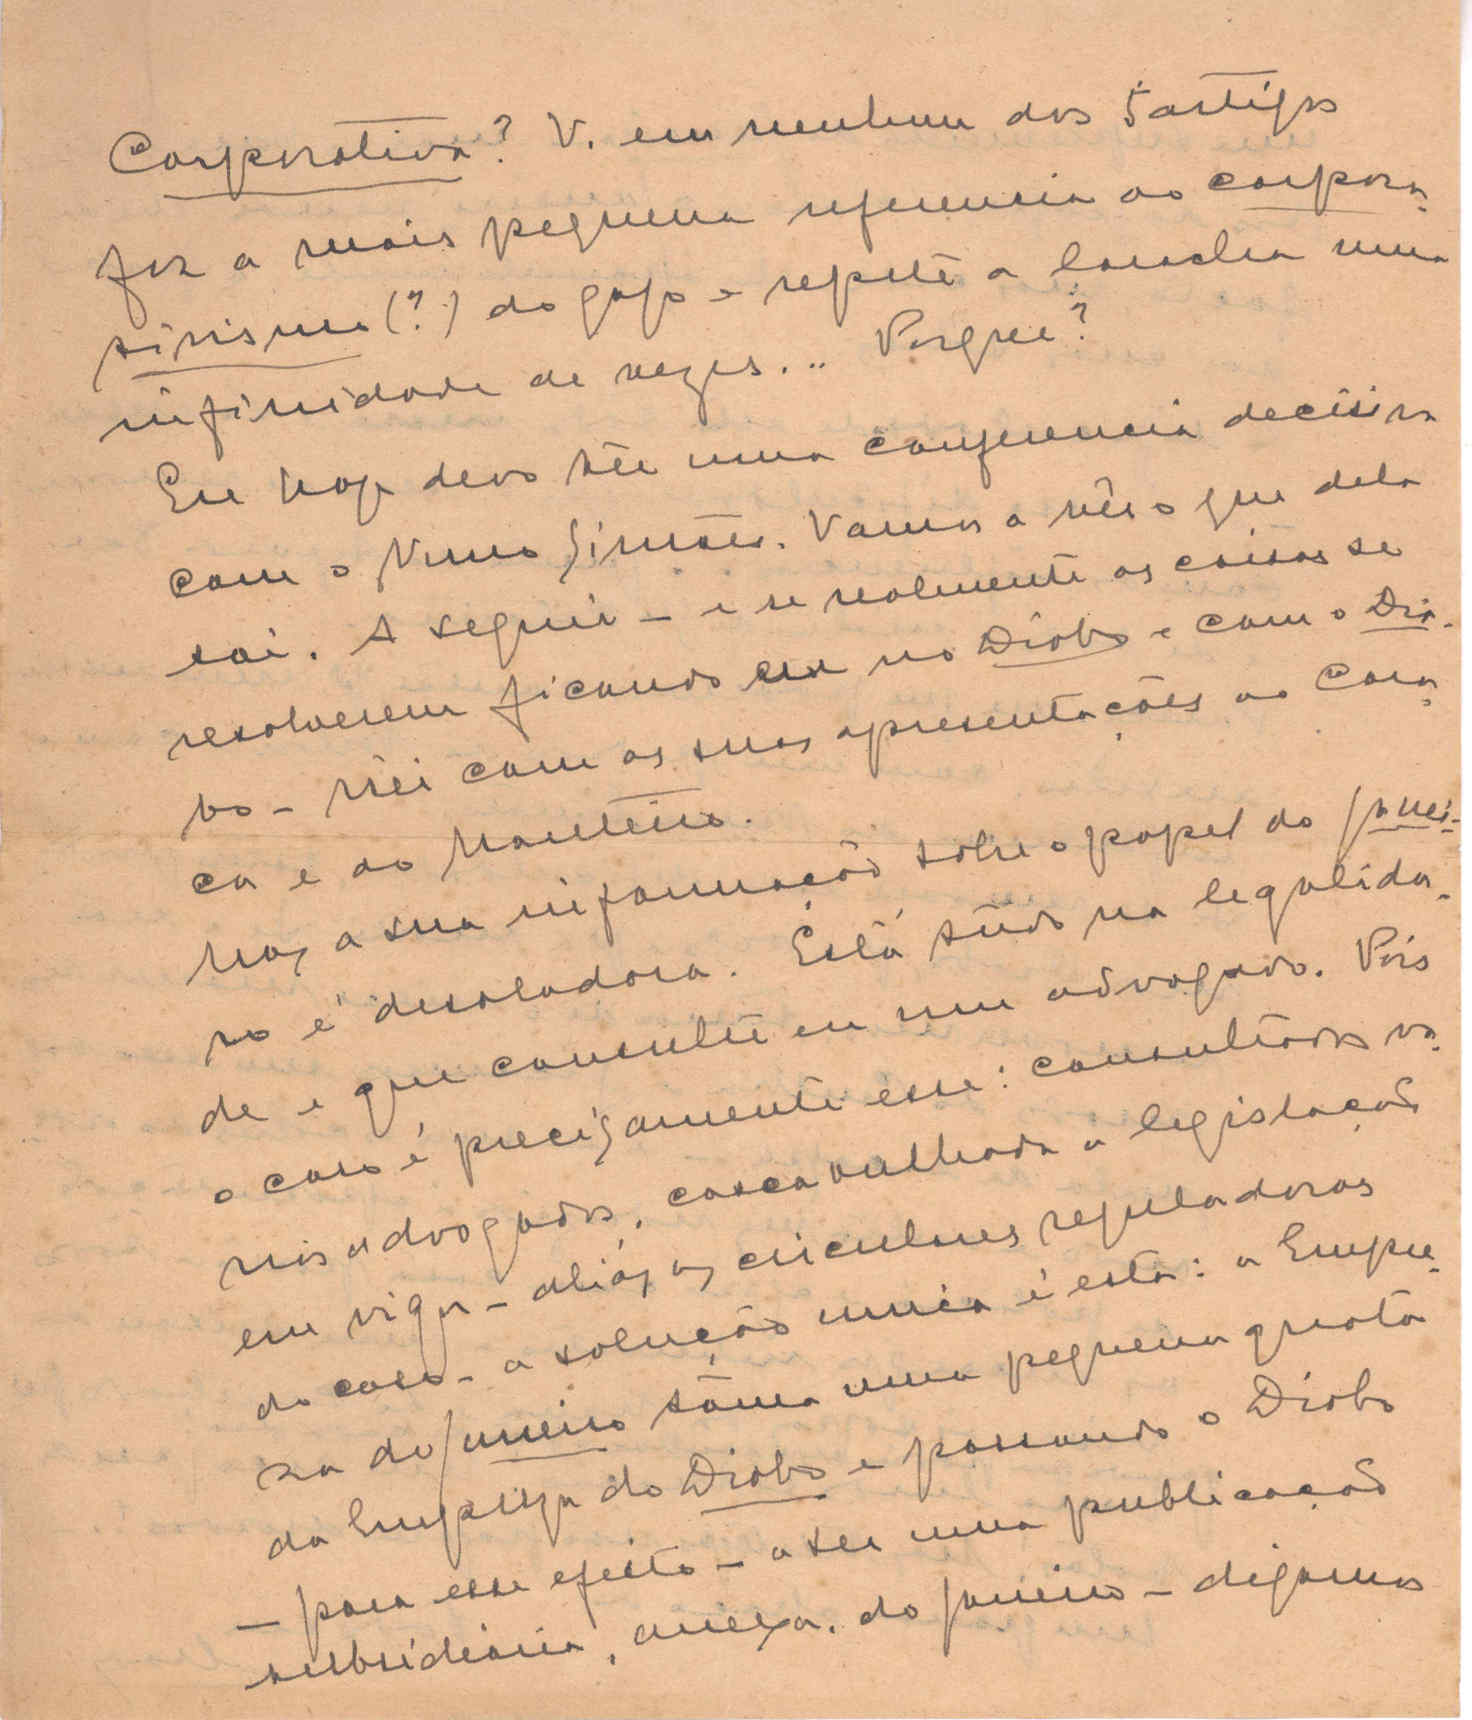 Corporativa? V. em nenhum dos 5 artigos
faz a mais pequena referencia ao corpora-
tivismo (?) do gajo e repete a laracha uma
infinidade de vezes... Porque?
Eu hoje devo têr uma conferencia decisiva
com o Nuno Simões. Vamos a vêr o que dela
sai. A seguir - e se realmente as coisas se
resolverem ficando eu no Diabo e com o Dia-
bo - irei com as suas apresentações ao Cara-
ça e ao Monteiro.
Mas a sua informação sobre o papel do Janei-
ro é desoladora. Está tudo na legalida-
de e que consulte eu um advogado. Pois
o caso é precizamente esse: consultados va-
rios advogados, cascavilhada a legislação
em vigor - aliás as circulares reguladoras
do caso - a solução unica é esta: a Empre-
za do Janeiro tôma uma pequena quota
da Empreza do Diabo e passando o Diabo
- para esse efeito - a ser uma publicação
subsidiaria, anexa, do Janeiro - digamos